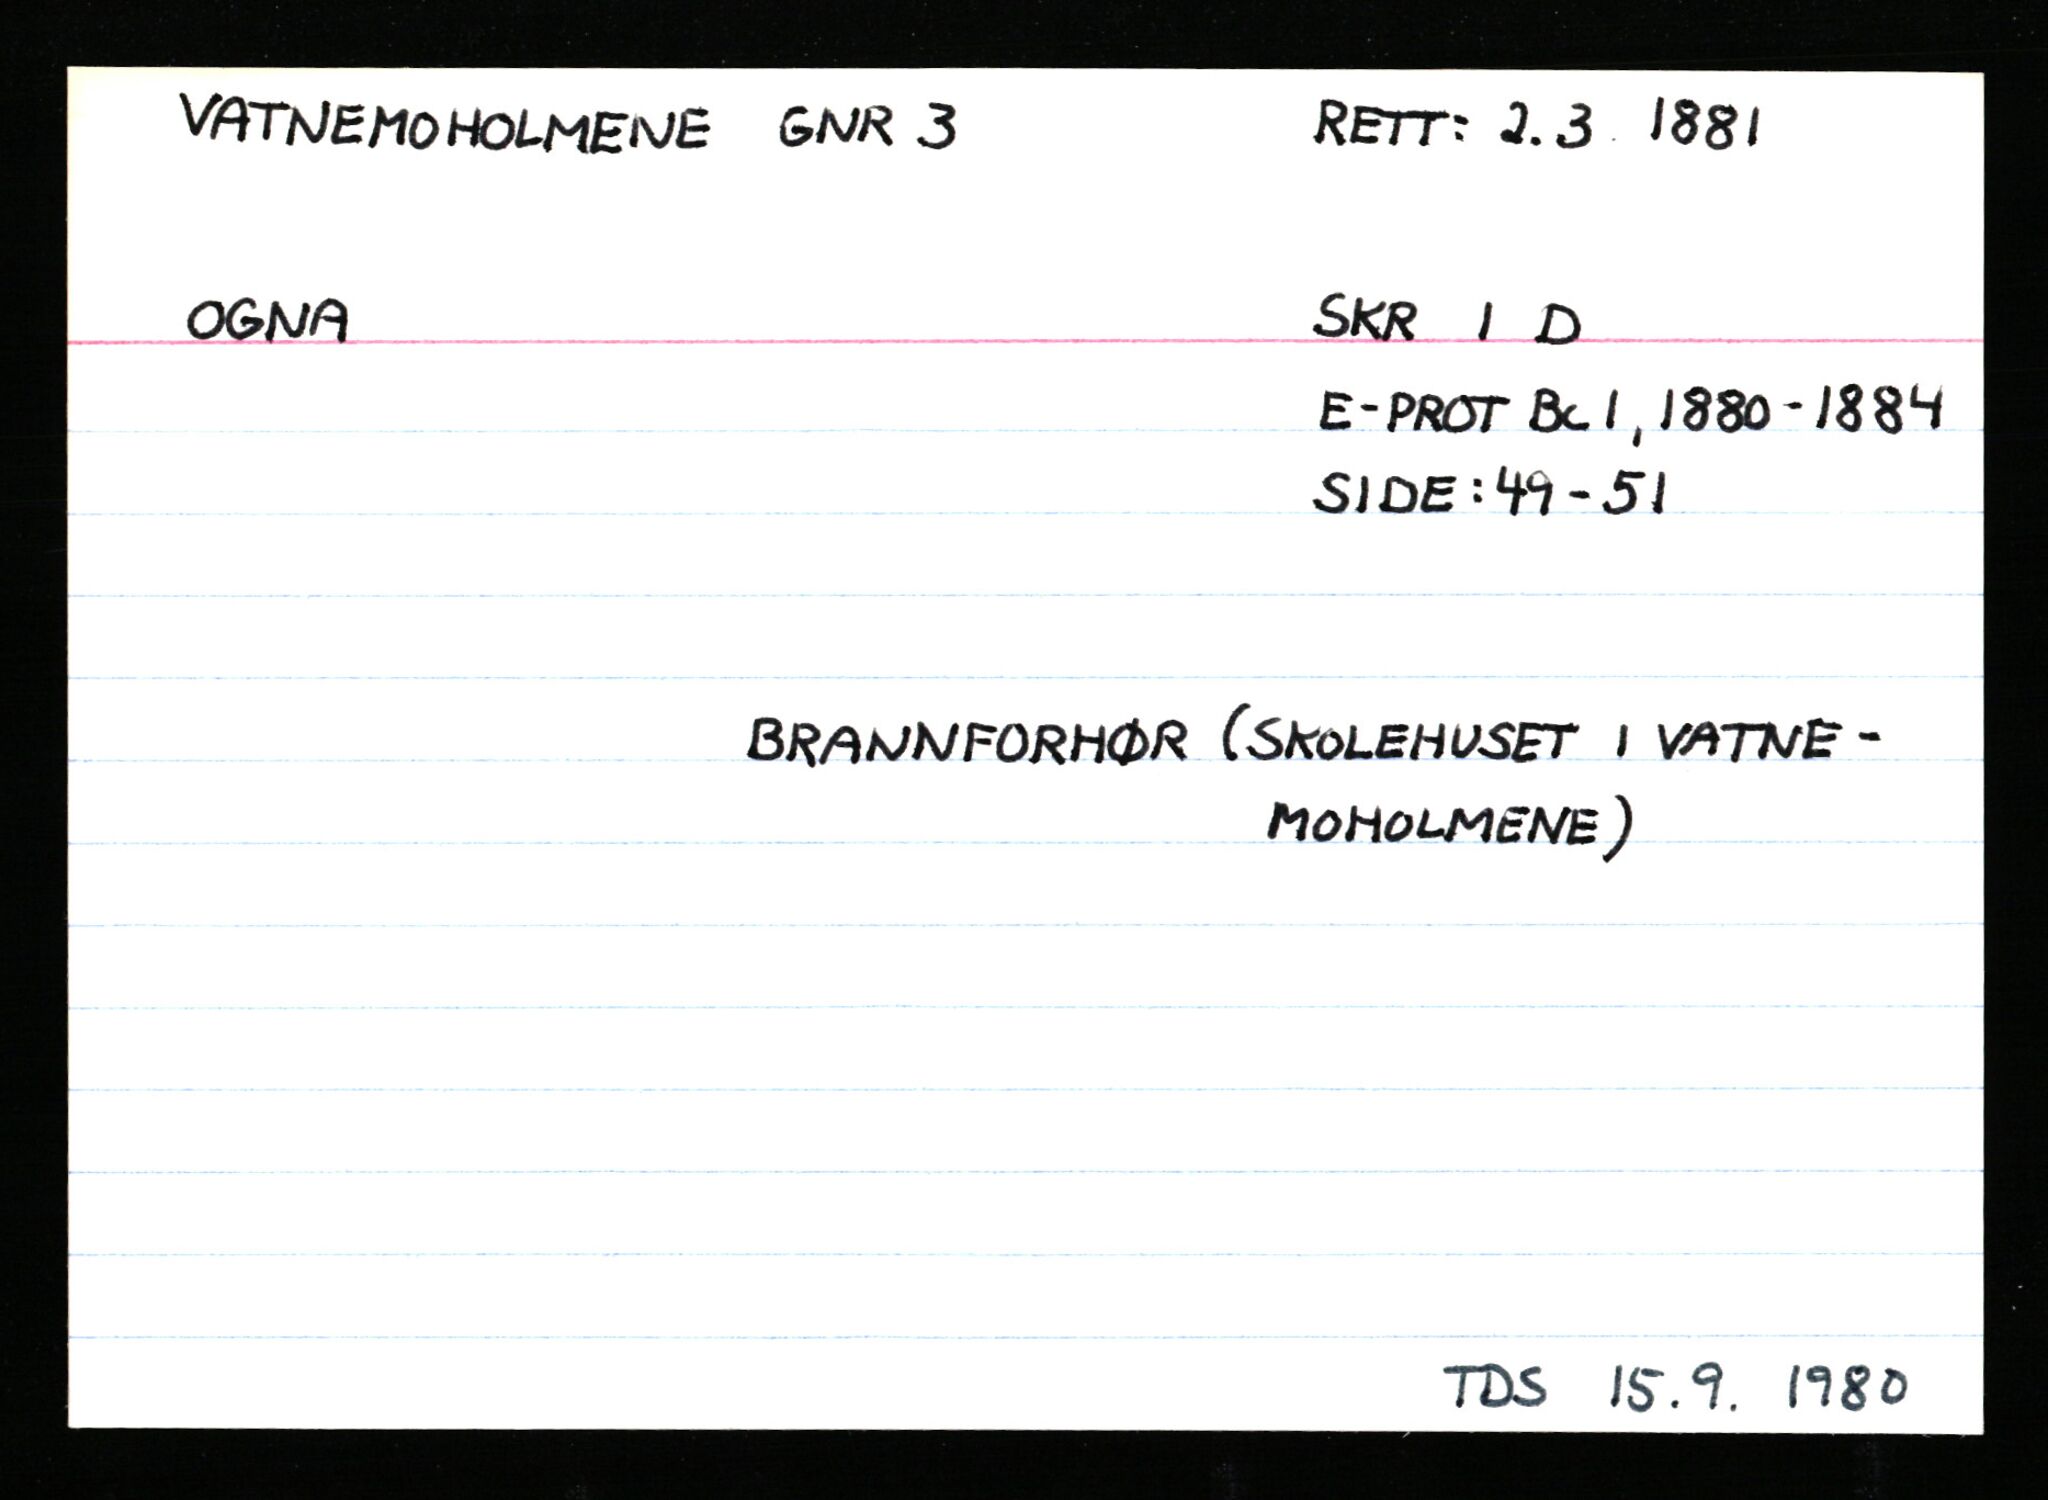 VATNEMOHOLMENE GNR 3 RETT: 2.3. 1881
OGNA SKR 1 D
E-PROT Bc 1, 1880-1884
SIDE: 49-51
BRANNFORHØR (SKOLEHUSET I VATNE-
MOHOLMENE)
TDS 15.9. 1980